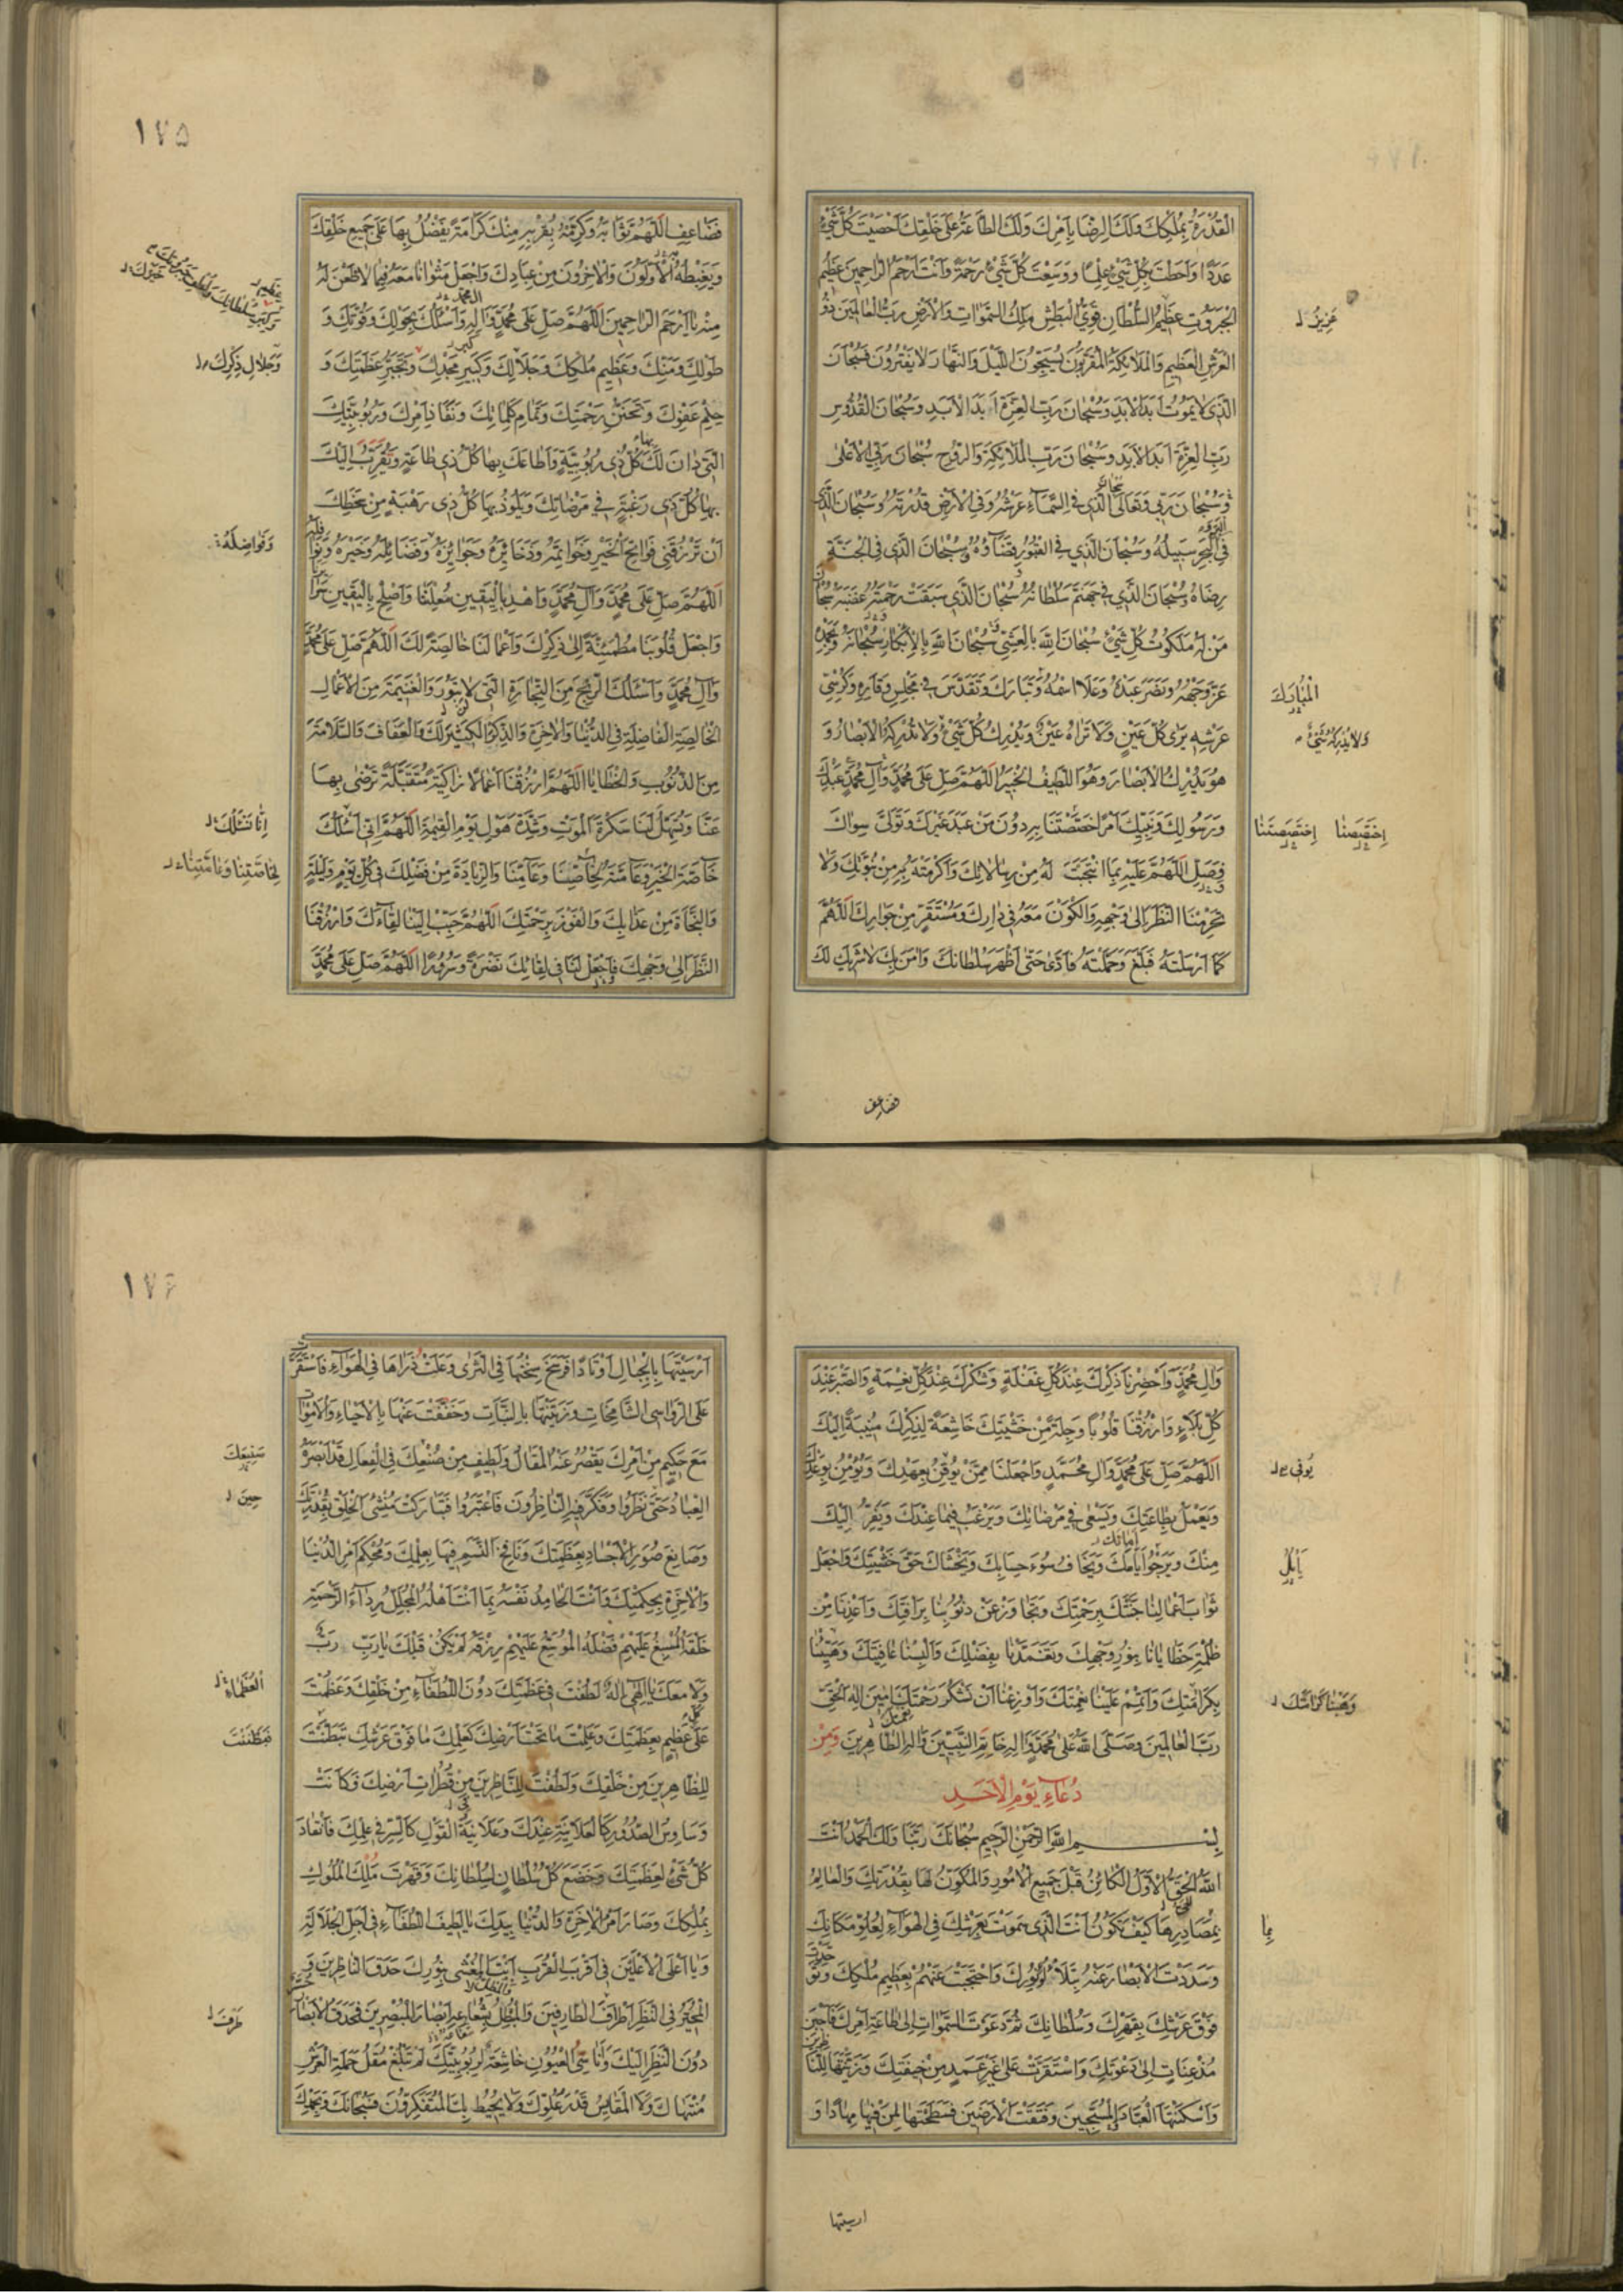 الْقُدْرَةُ بِمُلْكِكَ وَلَكَ الرِّضَا بِأَمْرِكَ وَلَكَ الطَّاعَةُ عَلَى خَلْقِكَ أَحْصَيْتَ كُلَّ شَيْءٍ
عَدَدًا وَأَحَطْتَ بِكُلِّ شَيْءٍ عِلْمًا وَوَسِعْتَ كُلَّ شَيْءٍ رَحْمَةً وَأَنْتَ أَرْحَمُ الرَّاحِمِينَ عَظِيمُ
الْجَبَرُوتِ عَظِيمُ السُّلْطَانِ قَوِيُّ الْبَطْشِ مَلِكُ السَّمٰوَاتِ وَالْأَرْضِ رَبُّ الْعَالَمِينَ ذُو
عَزِيزُ
الْعَرْشِ الْعَظِيمِ وَالْمَلَائِكَةُ الْمُقَرَّبُونَ يُسَبِّحُونَ اللَّيْلَ وَالنَّهَارَ لَا يَفْتُرُونَ فَسُبْحَانَ
الَّذِي لَا يَمُوتُ أَبَدَ الْأَبَدِ وَسُبْحَانَ رَبِّ الْعِزَّةِ أَبَدَ الْأَبَدِ وَسُبْحَانَ الْقُدُّوسِ
رَبِّ الْعِزَّةِ أَبَدَ الْأَبَدِ وَسُبْحَانَ رَبِّ الْمَلَائِكَةِ وَالرُّوحِ سُبْحَانَ رَبِّيَ الْأَعْلَى
وَسُبْحَانَ رَبِّي وَتَعَالَى الَّذِي فِي السَّمَاءِ عَرْشُهُ وَفِي الْأَرْضِ قُدْرَتُهُ وَسُبْحَانَ الَّذِي
فِي الْبَحْرِ سَبِيلُهُ وَسُبْحَانَ الَّذِي فِي الْقُبُورِ قَضَاؤُهُ وَسُبْحَانَ الَّذِي فِي الْجَنَّةِ
رِضَاهُ وَسُبْحَانَ الَّذِي فِي جَهَنَّمَ سُلْطَانُهُ سُبْحَانَ الَّذِي سَبَقَتْ رَحْمَتُهُ غَضَبَهُ سُبْحَانَ
مَنْ لَهُ مَلَكُوتُ كُلِّ شَيْءٍ سُبْحَانَ اللّٰهِ بِالْعَشِيِّ سُبْحَانَ اللّٰهِ بِالْإِبْكَارِ سُبْحَانَهُ وَبِحَمْدِهِ
عَزَّ وَجْهُهُ وَنَصَرَ عَبْدَهُ وَعَلَا اسْمُهُ وَتَبَارَكَ وَتَقَدَّسَ فِي مَجْلِسِ وَقَارِهِ وَكُرْسِيِّ
الْمُبَارَكَ
عَرْشِهِ يَرَى كُلَّ عَيْنٍ وَلَا تَرَاهُ عَيْنٌ وَيُدْرِكُ كُلَّ شَيْءٍ وَلَا تُدْرِكُهُ الْأَبْصَارُ وَ
وَلَا يُدْرِكُهُ شَيْءٌ
هُوَ يُدْرِكُ الْأَبْصَارَ وَهُوَ اللَّطِيفُ الْخَبِيرُ اللّٰهُمَّ صَلِّ عَلَى مُحَمَّدٍ وَآلِ مُحَمَّدٍ عَبْدِكَ
وَرَسُولِكَ وَنَبِيِّكَ أَمْرًا اخْتَصَصْتَنَا بِهِ دُونَ مَنْ عَبَدَ غَيْرَكَ وَتَوَلَّى سِوَاكَ
اِخْتَصَصْتَنَا
فَصَلِّ اللّٰهُمَّ عَلَيْهِ بِمَا انْتَجَبْتَ لَهُ مِنْ رِسَالَاتِكَ وَأَكْرَمْتَهُ بِهِ مِنْ نُبُوَّتِكَ وَلَا
تَحْرِمْنَا النَّظَرَ إِلَى وَجْهِهِ وَالْكَوْنَ مَعَهُ فِي دَارِكَ وَمُسْتَقَرٍّ مِنْ جِوَارِكَ اللّٰهُمَّ
كَمَا أَرْسَلْتَهُ فَبَلَّغَ وَحَمَّلْتَهُ فَأَدَّى حَتَّى أَظْهَرَ سُلْطَانَكَ وَآمَنَ بِكَ لَا شَرِيكَ لَكَ
فضاعف
١٧٥
فَضَاعِفِ اللّٰهُمَّ ثَوَابَهُ وَكَرِّمْهُ بِقُرْبِهِ مِنْكَ كَرَامَةً يَفْضُلُ بِهَا عَلَى جَمِيعِ خَلْقِكَ
وَيَغْبِطُهُ الْأَوَّلُونَ وَالْآخِرُونَ مِنْ عِبَادِكَ وَاجْعَلْ مَثْوَانَا مَعَهُ فِيمَا لَا ظَعْنَ لَهُ
مِنْهُ يَا أَرْحَمَ الرَّاحِمِينَ اللّٰهُمَّ صَلِّ عَلَى مُحَمَّدٍ وَآلِهِ وَأَسْأَلُكَ بِحَوْلِكَ وَقُوَّتِكَ وَ
طَوْلِكَ وَمَنِّكَ وَعَظِيمِ مُلْكِكَ وَجَلَالِكَ وَكَبِيرِ مَجْدِكَ وَتَجَبُّرِ عَظَمَتِكَ وَ
وَجَلَالِ ذِكْرِكَ
حِلْمِ عَفْوِكَ وَتَحَنُّنِ رَحْمَتِكَ وَتَمَامِ كَلِمَاتِكَ وَنَفَاذِ أَمْرِكَ وَرُبُوبِيَّتِكَ
الَّتِي دَانَ لَكَ كُلُّ ذِي رُبُوبِيَّةٍ وَأَطَاعَكَ بِهَا كُلُّ ذِي طَاعَةٍ وَتَقَرَّبَ إِلَيْكَ
بِهَا كُلُّ ذِي رَغْبَةٍ فِي مَرْضَاتِكَ وَيَلُوذُ بِهَا كُلُّ ذِي رَهْبَةٍ مِنْ سَخَطِكَ
أَنْ تَرْزُقَنِي فَوَاتِحَ الْخَيْرِ وَخَوَاتِمَهُ وَذَخَائِرَهُ وَجَوَائِزَهُ وَفَضَائِلَهُ وَخَيْرَهُ وَنَوَافِلَهُ
وَفَوَاضِلَهُ
اللّٰهُمَّ صَلِّ عَلَى مُحَمَّدٍ وَآلِ مُحَمَّدٍ وَاهْدِ بِالْيَقِينِ مُعْلَنَنَا وَأَصْلِحْ بِالْيَقِينِ سَرَائِرَنَا
وَاجْعَلْ قُلُوبَنَا مُطْمَئِنَّةً إِلَى ذِكْرِكَ وَأَعْمَالَنَا خَالِصَةً لَكَ اللّٰهُمَّ صَلِّ عَلَى مُحَمَّدٍ
وَآلِ مُحَمَّدٍ وَأَسْأَلُكَ الرِّبْحَ مِنَ التِّجَارَةِ الَّتِي لَا تَبُورُ وَالْغَنِيمَةَ مِنَ الْأَعْمَالِ
الْخَالِصَةِ الْفَاضِلَةِ فِي الدُّنْيَا وَالْآخِرَةِ وَالذِّكْرَ الْكَثِيرَ لَكَ وَالْعَفَافَ وَالسَّلَامَةَ
مِنَ الذُّنُوبِ وَالْخَطَايَا اللّٰهُمَّ ارْزُقْنَا أَعْمَالًا زَاكِيَةً مُتَقَبَّلَةً تَرْضَى بِهَا
عَنَّا وَتُسَهِّلُ لَنَا سَكْرَةَ الْمَوْتِ وَشِدَّةَ هَوْلِ يَوْمِ الْقِيٰمَةِ اللّٰهُمَّ إِنِّي أَسْأَلُكَ
إِنَّا نَسْئَلُكَ
خَاصَّةَ الْخَيْرِ وَعَامَّتَهُ لِخَاصِّنَا وَعَامِّنَا وَالزِّيَادَةَ مِنْ فَضْلِكَ فِي كُلِّ يَوْمٍ وَلَيْلَةٍ
لِخَاصَّتِنَا وَعَامَّتِنَا
وَالنَّجَاةَ مِنْ عَذَابِكَ وَالْفَوْزَ بِرَحْمَتِكَ اللّٰهُمَّ حَبِّبْ إِلَيْنَا لِقَاءَكَ وَارْزُقْنَا
النَّظَرَ إِلَى وَجْهِكَ وَاجْعَلْ لَنَا فِي لِقَائِكَ نَضْرَةً وَسُرُورًا اللّٰهُمَّ صَلِّ عَلَى مُحَمَّدٍ
وَآلِ مُحَمَّدٍ وَأَحْضِرْنَا ذِكْرَكَ عِنْدَ كُلِّ غَفْلَةٍ وَشُكْرَكَ عِنْدَ كُلِّ نِعْمَةٍ وَالصَّبْرَ عِنْدَ
كُلِّ بَلَاءٍ وَارْزُقْنَا قُلُوبًا وَجِلَةً مِنْ خَشْيَتِكَ خَاشِعَةً لِذِكْرِكَ مُنِيبَةً إِلَيْكَ
اللّٰهُمَّ صَلِّ عَلَى مُحَمَّدٍ وَآلِ مُحَمَّدٍ وَاجْعَلْنَا مِمَّنْ يُوقِنُ بِعَهْدِكَ وَيُؤْمِنُ بِوَعْدِكَ
يُوفِي
وَيَعْمَلُ بِطَاعَتِكَ وَيَسْعَى فِي مَرْضَاتِكَ وَيَرْغَبُ فِيمَا عِنْدَكَ وَيَفِرُّ إِلَيْكَ
مِنْكَ وَيَرْجُو أَيَّامَكَ وَيَخَافُ سُوءَ حِسَابِكَ وَيَخْشَاكَ حَقَّ خَشْيَتِكَ وَاجْعَلْ
ثَوَابَ أَعْمَالِنَا جَنَّتَكَ بِرَحْمَتِكَ وَتَجَاوَزْ عَنْ ذُنُوبِنَا بِرَأْفَتِكَ وَأَعِذْنَا مِنْ
ظُلْمَةِ خَطَايَانَا بِنُورِ وَجْهِكَ وَتَغَمَّدْنَا بِفَضْلِكَ وَأَلْبِسْنَا عَافِيَتَكَ وَهَنِّئْنَا
بِكَرَامَتِكَ وَأَتْمِمْ عَلَيْنَا نِعْمَتَكَ وَأَوْزِعْنَا أَنْ نَشْكُرَ رَحْمَتَكَ آمِينَ إِلٰهَ الْحَقِّ
رَبَّ الْعَالَمِينَ وَصَلَّى اللّٰهُ عَلَى مُحَمَّدٍ وَآلِهِ خَاتَمِ النَّبِيِّينَ وَآلِهِ الطَّاهِرِينَ وَمِنْ
دُعَاءِ يَوْمِ الْأَحَدِ
بِسْمِ اللّٰهِ الرَّحْمٰنِ الرَّحِيمِ سُبْحَانَكَ رَبَّنَا وَلَكَ الْحَمْدُ أَنْتَ
اللّٰهُ الْحَقُّ الْأَوَّلُ الْكَائِنُ قَبْلَ جَمِيعِ الْأُمُورِ وَالْمُكَوِّنُ لَهَا بِقُدْرَتِكَ وَالْعَالِمُ
بِمَصَادِرِهَا كَيْفَ تَكُونُ أَنْتَ الَّذِي سَمَوْتَ بِعَرْشِكَ فِي الْهَوَاءِ لِعُلُوِّ مَكَانِكَ
وَسَدَدْتَ الْأَبْصَارَ عَنْهُ بِتَلَأْلُؤِ نُورِكَ وَاحْتَجَبْتَ عَنْهُمْ بِعَظِيمِ مُلْكِكَ
فَوْقَ عَرْشِكَ بِقَهْرِكَ وَسُلْطَانِكَ ثُمَّ دَعَوْتَ السَّمٰوَاتِ إِلَى طَاعَةِ أَمْرِكَ فَأَجَبْنَ
مُذْعِنَاتٍ إِلَى دَعْوَتِكَ وَاسْتَقَرَّتْ عَلَى غَيْرِ عَمَدٍ مِنْ خِيفَتِكَ وَزَيَّنْتَهَا لِلنَّاظِرِينَ
وَأَسْكَنْتَهَا الْعِبَادَ الْمُسَبِّحِينَ وَفَتَقْتَ الْأَرَضِينَ فَسَطَحْتَهَا لِمَنْ فِيهَا مِهَادًا وَ
ارسيتها
١٧٦
أَرْسَيْتَهَا بِالْجِبَالِ أَوْتَادًا فَرَسَخَ سِنْخُهَا فِي الثَّرَى وَعَلَتْ ذُرَاهَا فِي الْهَوَاءِ فَاسْتَقَرَّتْ
عَلَى الرَّوَاسِي الشَّامِخَاتِ وَزَيَّنْتَهَا بِالنَّبَاتِ وَخَفَّفْتَ عَنْهَا بِالْأَحْيَاءِ وَالْأَمْوَاتِ
مَعَ حَكِيمٍ مِنْ أَمْرِكَ يَقْصُرُ عَنْهُ الْمَقَالُ وَلَطِيفٍ مِنْ صُنْعِكَ فِي الْفِعَالِ قَدْ أَبْصَرَهُ
الْعِبَادُ حَتَّى نَظَرُوا وَفَكَّرَ فِيهِ النَّاظِرُونَ فَاعْتَبَرُوا فَتَبَارَكْتَ مُنْشِئَ الْخَلْقِ بِقُدْرَتِكَ
حِينَ
وَصَانِعَ صُوَرِ الْأَجْسَادِ بِعَظَمَتِكَ وَنَافِخَ النَّسِيمِ فِيهَا بِعِلْمِكَ وَمُحْكِمَ أَمْرِ الدُّنْيَا
وَالْآخِرَةِ بِحِكْمَتِكَ وَأَنْتَ الْحَامِدُ نَفْسَهُ بِمَا أَنْتَ أَهْلُهُ الْمُجَلِّلُ رِدَاءَ الرَّحْمَةِ
خَلْقَهُ الْمُسْبِغُ عَلَيْهِمْ فَضْلَهُ الْمُوَسِّعُ عَلَيْهِمْ رِزْقَهُ لَمْ يَكُنْ قَبْلَكَ يَا رَبِّ رَبٌّ
وَلَا مَعَكَ يَا إِلٰهِي إِلٰهٌ لَطُفْتَ فِي عَظَمَتِكَ دُونَ اللُّطَفَاءِ مِنْ خَلْقِكَ وَعَظُمْتَ
الْعُظَمَاءِ
عَلَى كُلِّ عَظِيمٍ بِعَظَمَتِكَ وَعَلِمْتَ مَا تَحْتَ أَرْضِكَ كَعِلْمِكَ مَا فَوْقَ عَرْشِكَ تَبَطَّنْتَ
فَبَطَنْتَ
لِلظَّاهِرِينَ مِنْ خَلْقِكَ وَلَطُفْتَ لِلنَّاظِرِينَ مِنْ قُطُرَاتِ أَرْضِكَ وَكَانَتْ
وَسَاوِسُ الصُّدُورِ كَالْعَلَانِيَةِ عِنْدَكَ وَعَلَانِيَةُ الْقَوْلِ كَالسِّرِّ فِي عِلْمِكَ فَانْقَادَ
كُلُّ شَيْءٍ لِعَظَمَتِكَ وَخَضَعَ كُلُّ سُلْطَانٍ لِسُلْطَانِكَ وَقَهَرْتَ مُلْكَ الْمُلُوكِ
بِمُلْكِكَ وَصَارَ أَمْرُ الْآخِرَةِ وَالدُّنْيَا بِيَدِكَ يَا لَطِيفَ اللُّطَفَاءِ فِي أَجَلِّ الْجَلَالَةِ
وَيَا أَعْلَى الْأَعْلَيْنَ فِي أَقْرَبِ الْقُرْبِ أَنْتَ الْمُغْشِي بِنُورِكَ حَدَقَ النَّاظِرِينَ وَ
الْمُحَيِّرُ فِي النَّظَرِ أَطْرَفَ الطَّارِفِينَ وَالْمُظِلُّ شُعَاعُهُ أَبْصَارَ الْمُبْصِرِينَ فَحَدَقُ الْأَبْصَارِ
طَرْفَ
دُونَ النَّظَرِ إِلَيْكَ وَأَنَاسِيُّ الْعُيُونِ خَاشِعَةٌ لِرُبُوبِيَّتِكَ لَمْ تَبْلُغْ مُقَلُ حَمَلَةِ الْعَرْشِ
مُنْتَهَاكَ وَلَا الْمَقَايِيسُ قَدْرَ عُلُوِّكَ وَلَا يُحِيطُ بِكَ الْمُتَفَكِّرُونَ فَسُبْحَانَكَ وَبِحَمْدِكَ